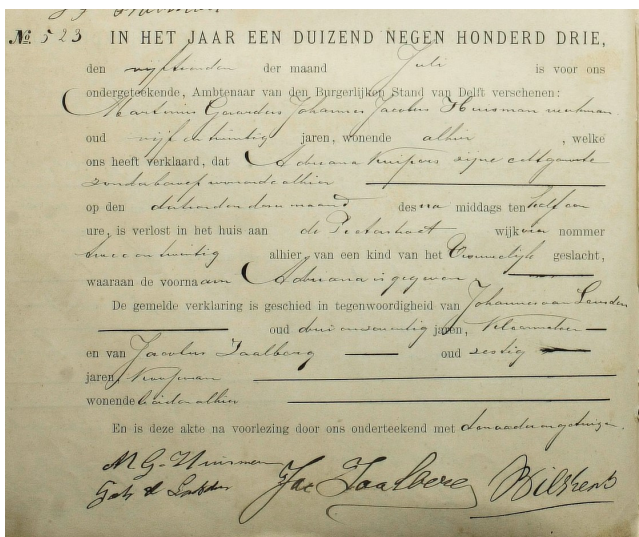 № 523 IN HET JAAR EEN DUIZEND NEGEN HONDERD DRIE,
den vijftienden der maand Juli is voor ons
ondergeteekende, Ambtenaar van den Burgerlijken Stand van Delft verschenen:
Martinus Gerardus Johannes Jacobus Huisman werkman
oud vijf en twintig jaren, wonende alhier, welke
ons heeft verklaard, dat Adriana Kuipers zijne echtgenoote
zonder beroep wonende alhier
op den dertienden dezer maand des na middags ten half een
ure, is verlost in het huis aan de wijk vier nommer
twee en twintig alhier, van een kind van het Vrouwelijk geslacht,
waaraan de voornaam Adriana is gegeven
De gemelde verklaring is geschied in tegenwoordigheid van Johannes van
oud drie en zeventig jaren,
en van Jacobus Taalberg oud zestig
jaren, Koopman
wonende beiden alhier
En is deze akte na voorlezing door ons onderteekend met den vader en getuigen.
M G Huisman
Jac Taalberg